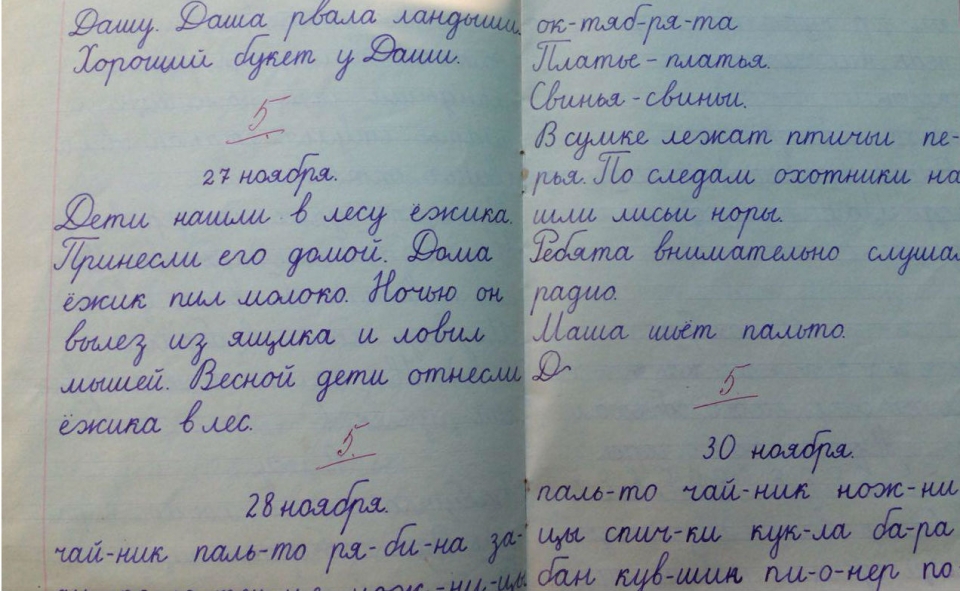 Дашу. Даша рвала ландыши.
Хороший букет у Даши.
5
27 ноября.
Дети нашли в лесу ёжика.
Принесли его домой. Дома
ёжик пил молоко. Ночью он
вылез из ящика и ловил
мышей. Весной дети отнесли
ёжика в лес.
5.
28 ноября.
чай-ник паль-то ря-би-на за-
ок-тяб-ря-та
Платье - платья.
Свинья - свиньи.
В сумке лежат птичьи пе-
рья. По следам охотники на
шли лисьи норы.
Ребята внимательно слушал
радио.
Маша шьёт пальто.
Д
5.
30 ноября.
паль-то чай-ник нож-ни
цы спич-ки кук-ла ба-ра
бан кув-шин пи-о-нер по-